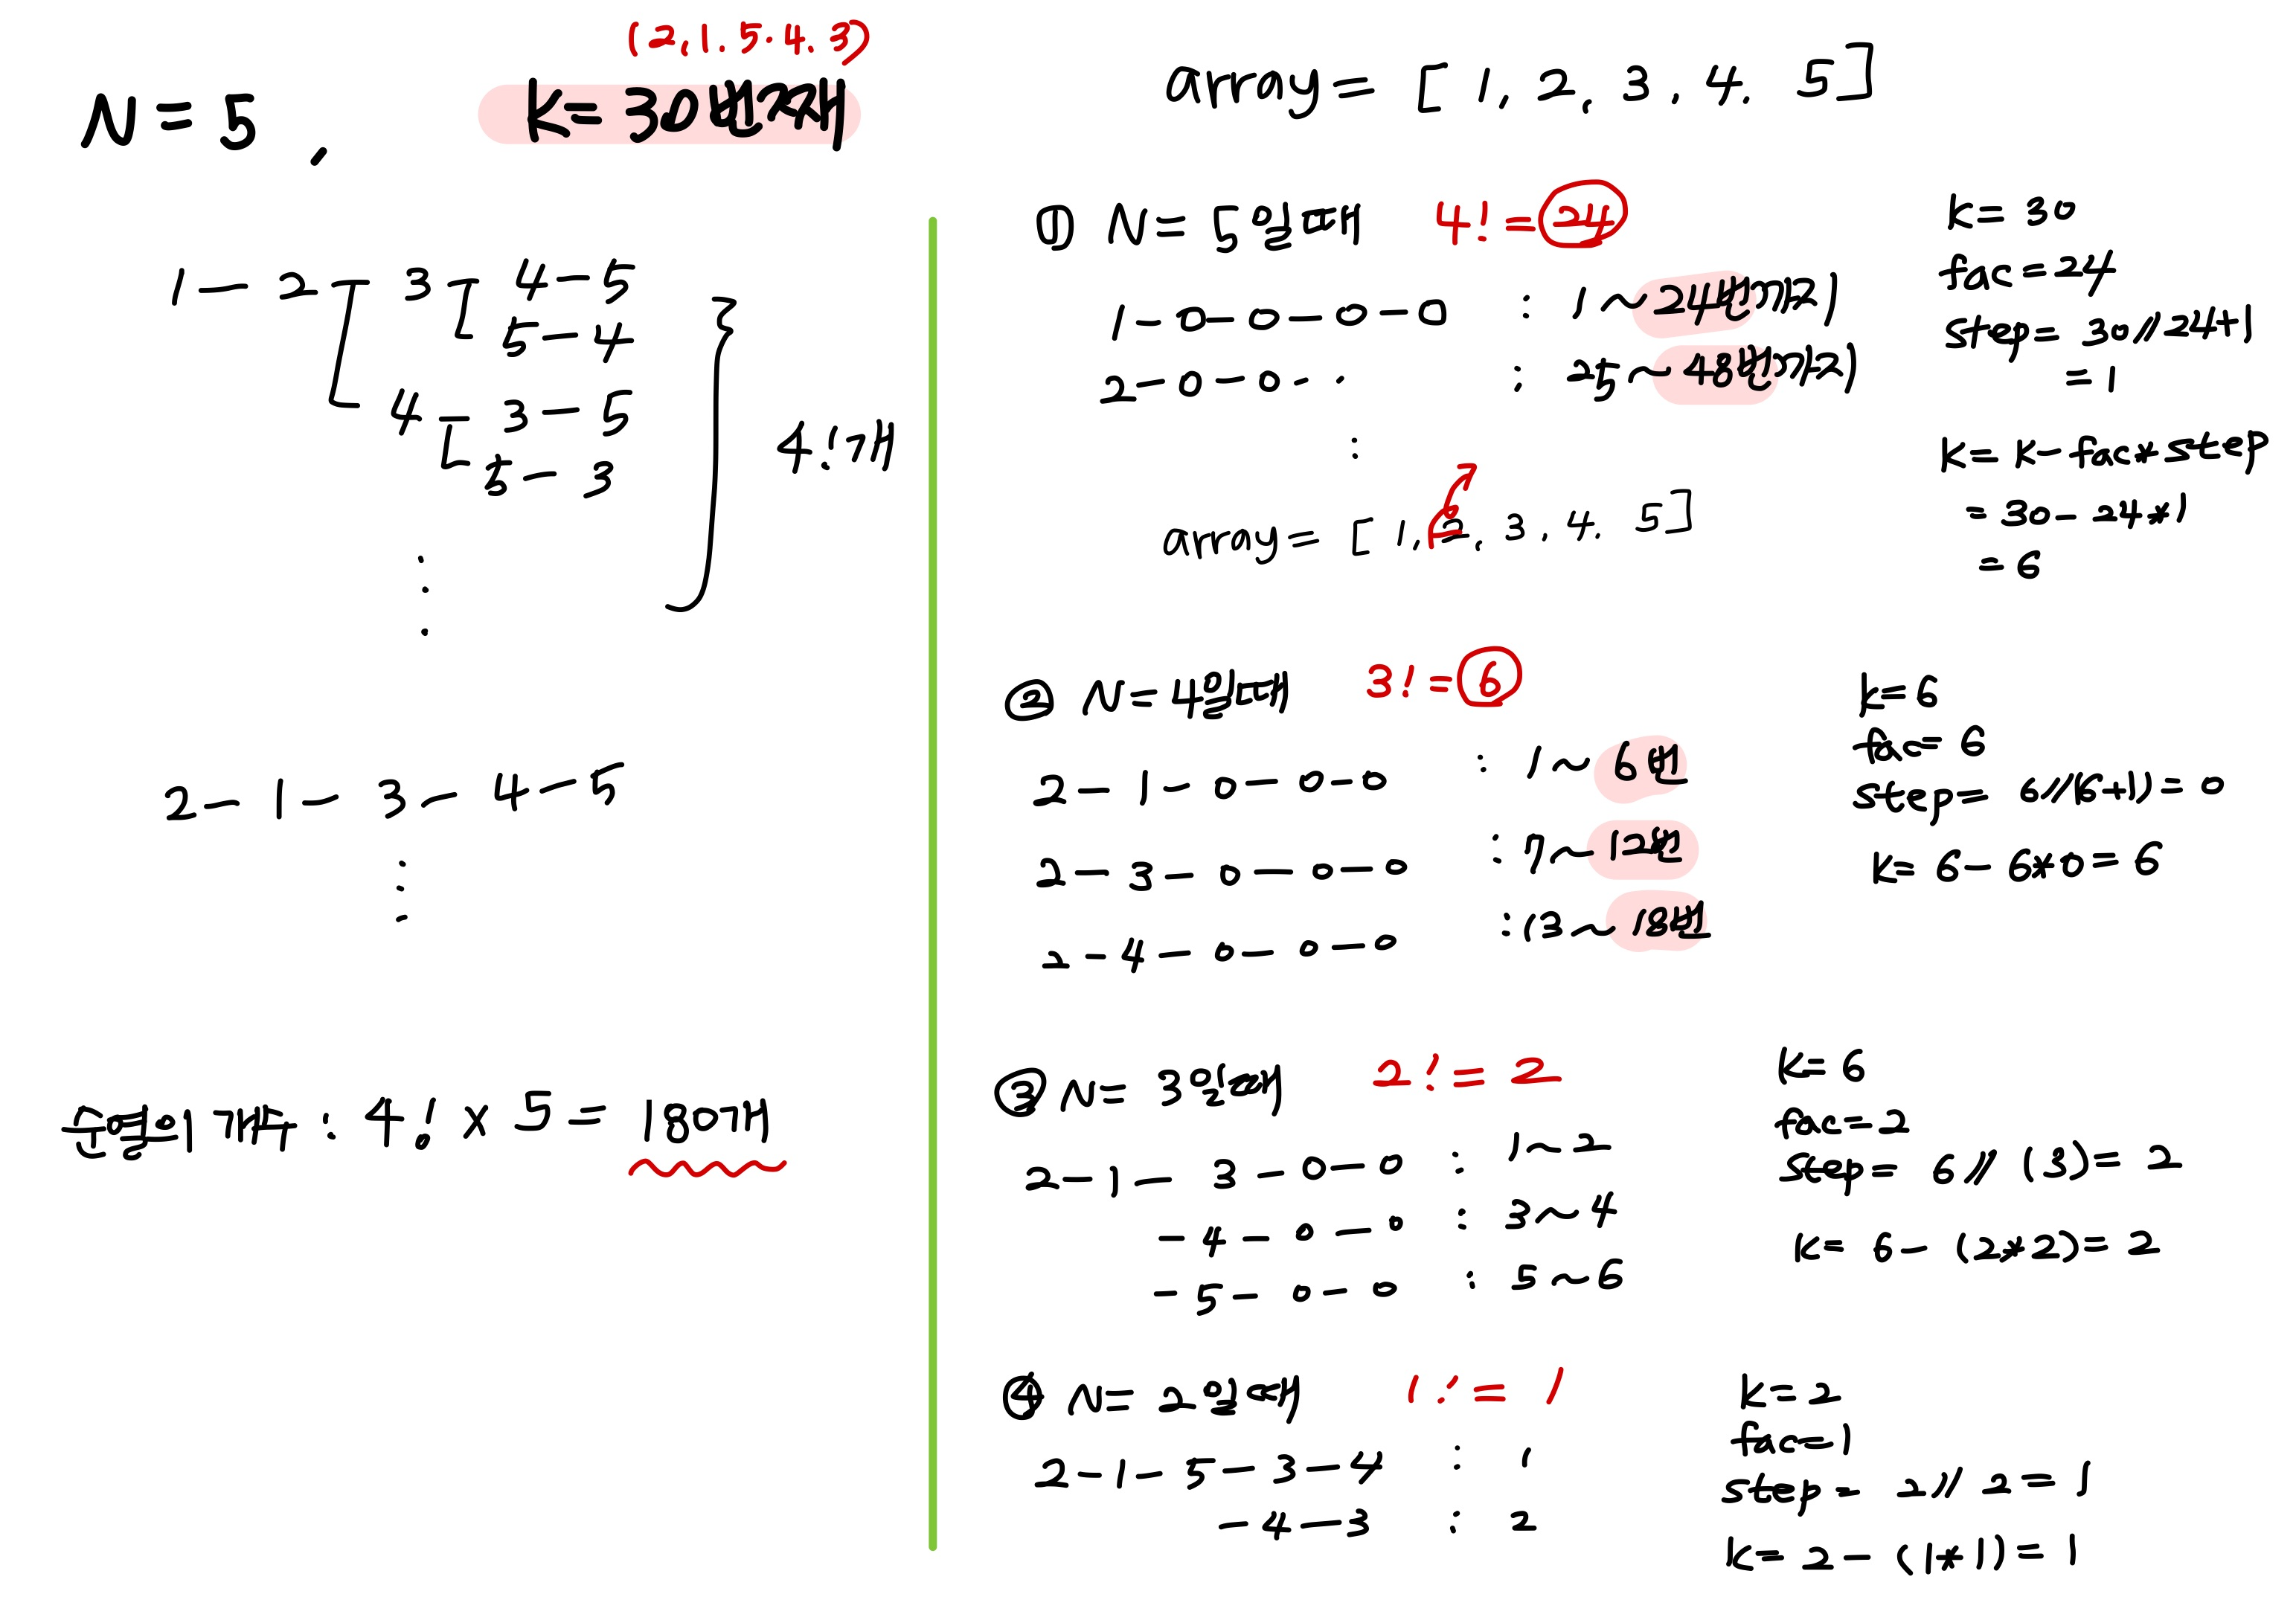 (2,1.5.4.3)
N=5, k=30번째
1-2-3-4-5
5-4
4-3-5
5-3
4!개
2-1-3-4-5
순열의 개수 : 4! x 5 = 180개
array= [1,2,3,4.5]
① N=5일때 4!=24
1-0-0-0-0 : 1~24번까지
2-0-0-· · : 25~48번까지
array= [1,2,3,4.5]
k=30
fac=24
step= 30//24+1
=1
k= k-fac*step
= 30-24*1
= 6
② N=4일때 3!=6
2-1-0-0-0 : 1~6번
2-3-0-0-0 : 7~12번
2-4-0-0-0 : 13~18번
k=6
fac=6
step= 6//(6+1)=0
k= 6-6*0=6
③ N= 3일때 2!=2
2-1-3-0-0 : 1~2
-4-0-0 : 3~4
-5-0-0 : 5~6
k=6
fac=2
step= 6//(3)=2
k= 6-(2*2)=2
④ N=2일때 1!=1
2-1-5-3-4 : 1
-4-3 : 2
k=2
fac=1
step= 2//2=1
k= 2-(1*1)=1